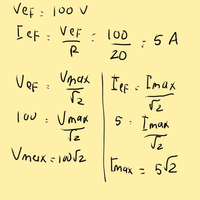 Vef = 100 V
Ief = Vef/R = 100/20 = 5 A
Vef = Vmax/√2
100 = Vmax/√2
Vmax = 100√2
Ief = Imax/√2
5 = Imax/√2
Imax = 5√2